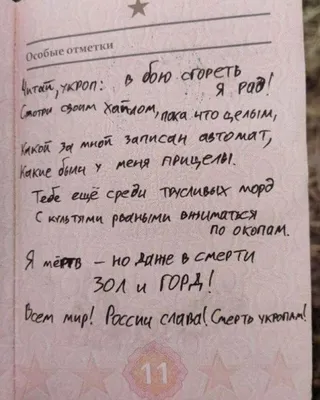 Особые отметки
Читай, укроп: в бою сгореть
Я рад!
Смотри своим хайлом, пока что целым,
Какой за мной записан автомат,
Какие были у меня прицелы.
Тебе ещё среди трусливых морд
С культями рваными вжиматься
по окопам.
Я мёртв – но даже в смерти
ЗОЛ и ГОРД!
Всем мир! России слава! Смерть укропам!
11